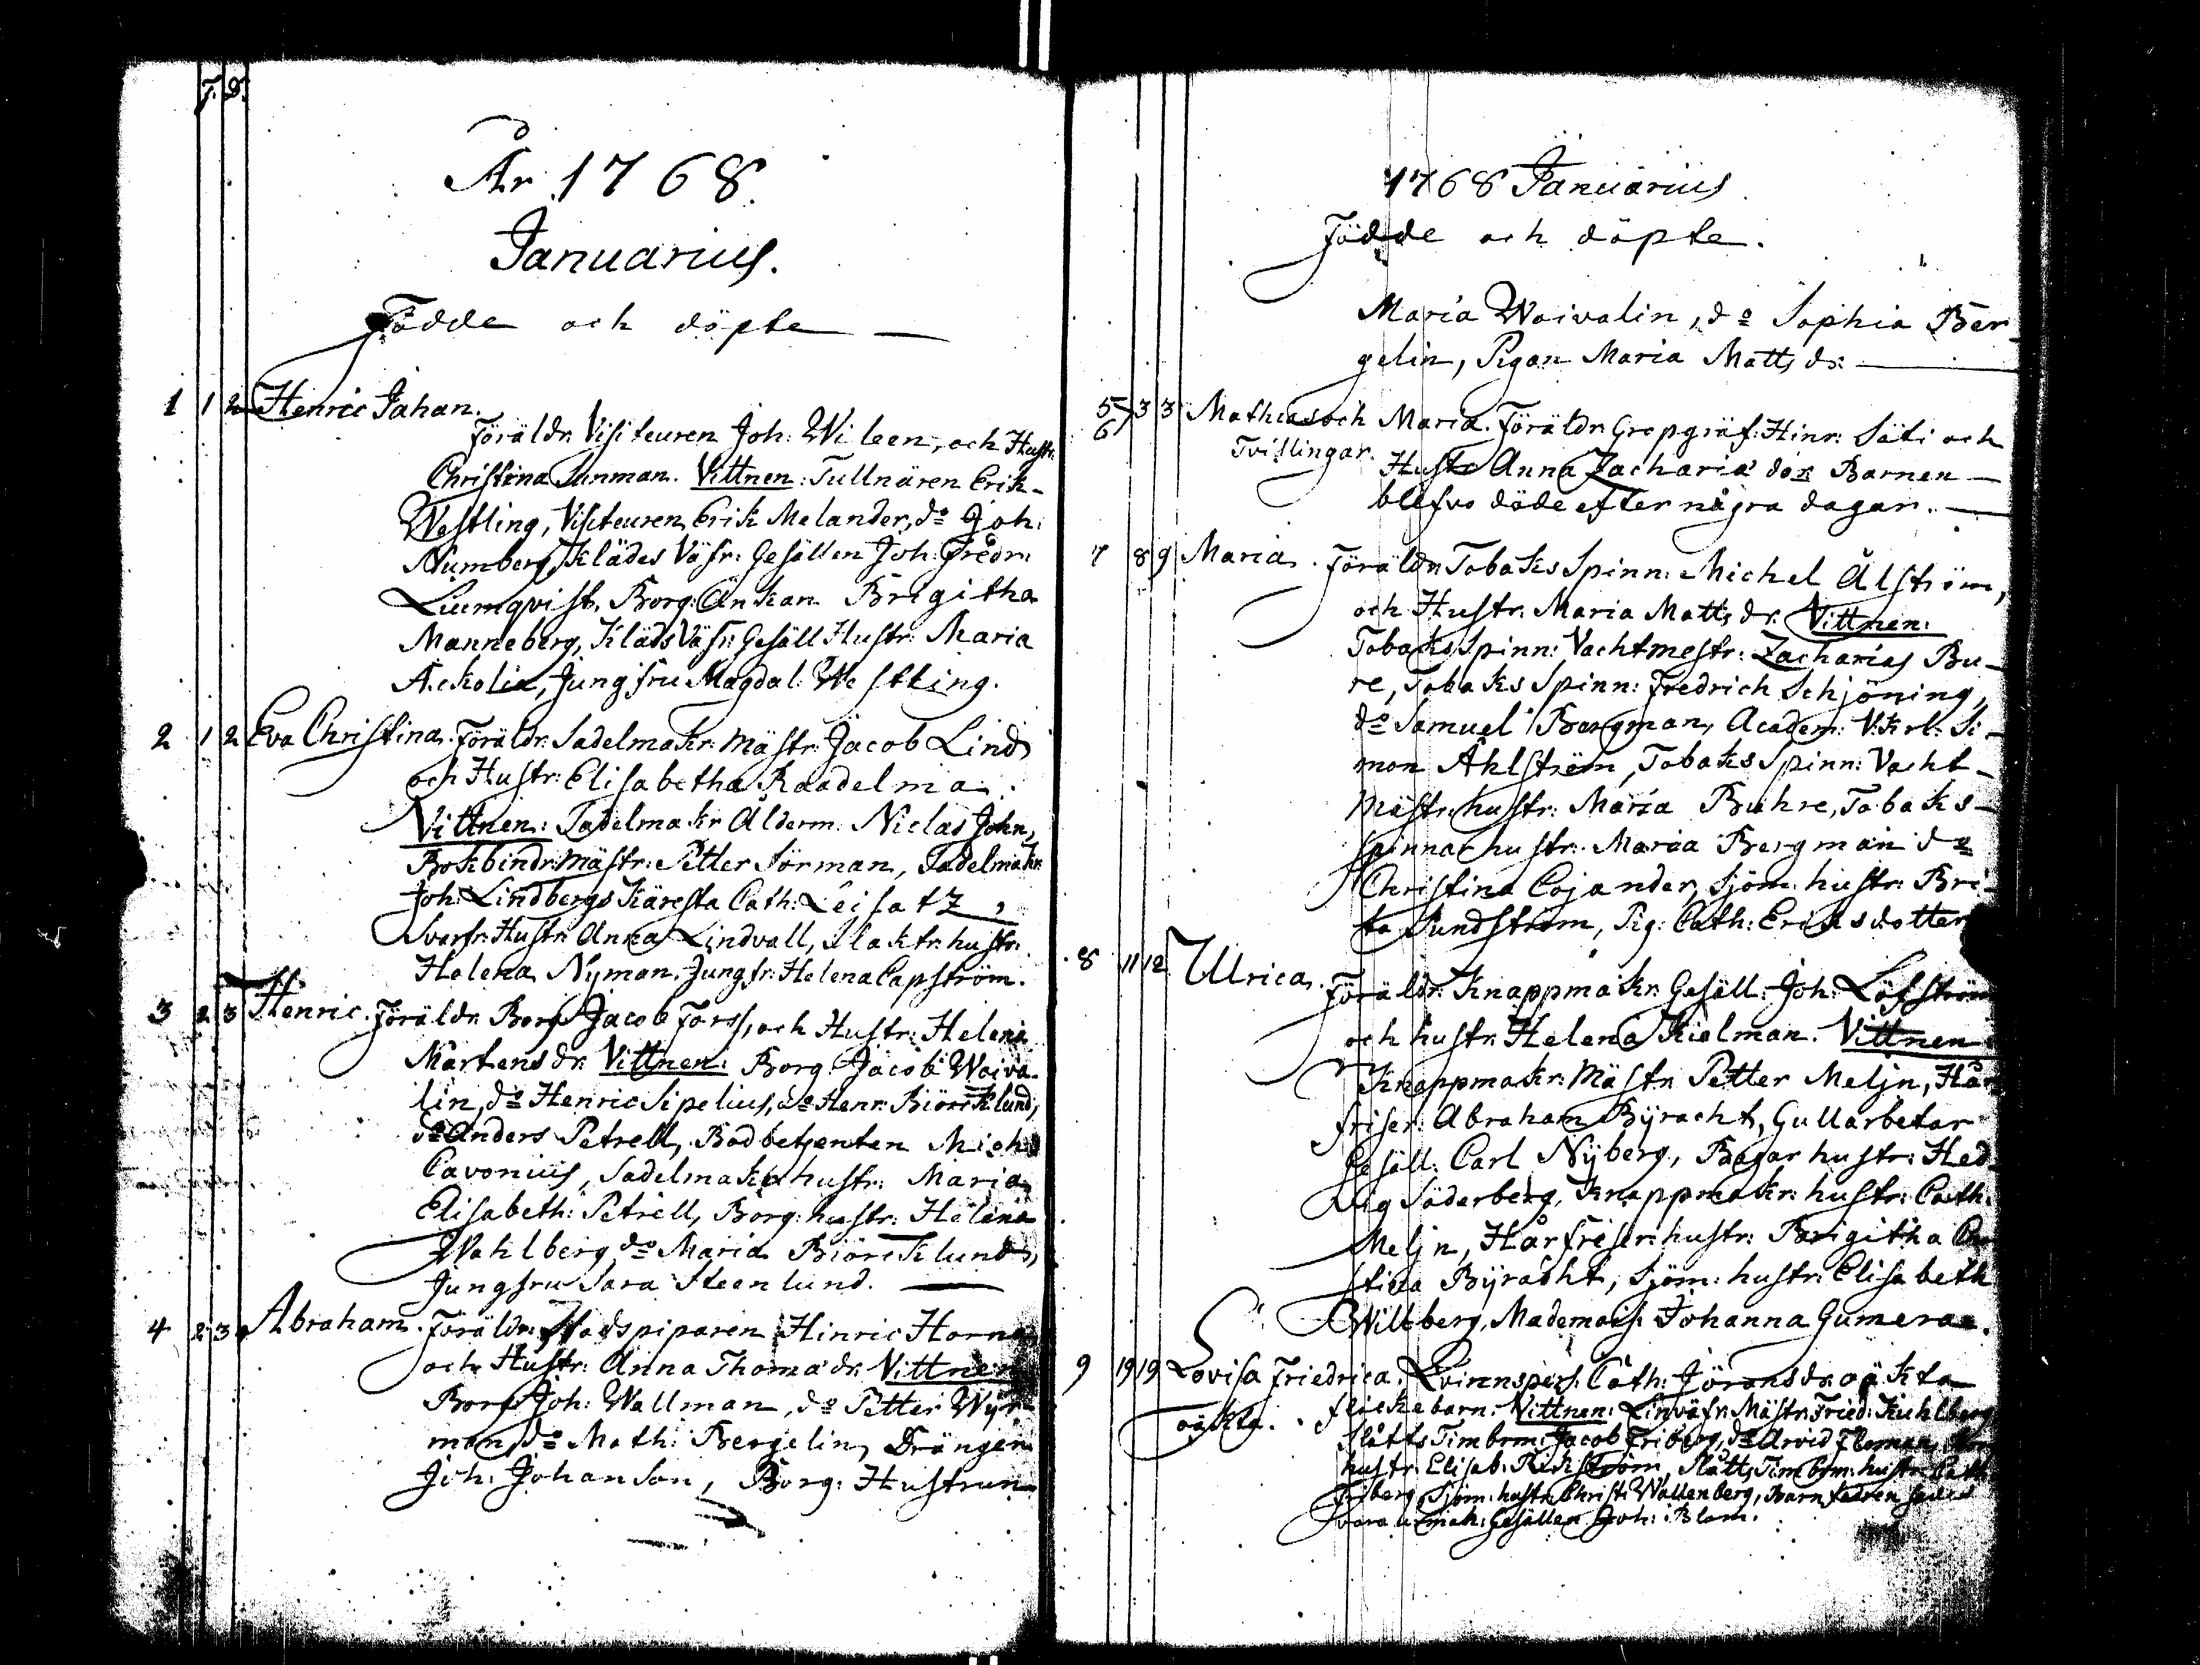 F. D.
År 1768.
Januarius.
Födde och döpte
1 1 2 Henric Johan.
Föräldr: Visiteuren Joh: Wileen, och Hustr:
Christina Sunman. Vittnen: Tullnären Erik
Westling, Visiteuren Erik Melander, do Joh:
Numberg, Klädes Väfv: Gesällen Joh: Fredr:
Liumqvist, Borg: Änkan Brigitha
Manneberg, Kläds Väfv: Gesäll Hustr: Maria
Ackolin, Jungfru Magdal: Westling.
2 1 2 Eva Christina. Föräldr: Sadelmakr: Mästr: Jacob Lind
och Hustr: Elisabetha Raadelma.
Vittnen: Sadelmakr Ålderm: Niclas John,
Bokbindr: Mästr: Petter Sörman, Sadelmakr
Joh: Lindbergs Käresta Cath: Leisatz,
Svarfr: Hustr: Anna Lindvall, Slaktr: hustr:
Helena Nyman, Jungfr: Helena Capström.
3 2 3 Henric. Föräldr: Borg: Jacob Forss, och Hustr: Helena
Mårtensdr: Vittnen: Borg: Jacob Waiva-
lin, do Henric Sipelius, do Henr: Biörcklund,
do Anders Petrell, Bodbetjenten Mich:
Cavonius, Sadelmakr: hustr: Maria
Elisabeth: Petrell, Borg: hustr: Helena
Wahlberg, do Maria Biörcklund,
Jungfru Sara Steenlund.
4 2 3 Abraham. Föräldr: Stadspiparen Hinric Horna
och Hustr: Anna Thomædr: Vittnen
Borg: Joh: Wallman, do Petter Wyr-
man, do Math: Bergelin, Drängen
Joh: Johanson, Borg: Hustrun
1768 Januarius
Födde och döpte.
Maria Waivalin, do Sophia Ber-
gelin, Pigan Maria Matts dr:
5 6 3 3 Mathias och Maria. Föräldr: Gropgräf: Hinr: Säti och
Tvillingar. Hustr: Anna Zachariæ dor: Barnen
blefvo döde efter några dagar.
7 8 9 Maria. Föräldr: Tobaks Spinn: Michel Ålström,
och Hustr: Maria Matts dr: Vittnen:
Tobaks Spinn: Vachtmestr: Zacharias Bu-
re, Tobaks Spinn: Fredrich Schjöning,
do Samuel Bergman, Academ: V:krl: Si-
mon Åhlström, Tobaks Spinn: Vacht-
Mästr: hustr: Maria Buhre, Tobaks-
spinnar hustr: Maria Bergman do
Christina Cojander, Sjöm: hustr: Bri-
ta Sundström, Pig: Cath: Ericsdotter
8 11 12 Ulrica. Föräldr: Knappmakr: Gesäll: Joh: Löfström
och hustr: Helena Kielman. Vittnen
Knappmakr: Mästr: Petter Meljn, Hår-
friser: Abraham Byracht, Gullarbetar
Gesäll: Carl Nyberg, Bagar hustr: Hed-
vig Söderberg, Knappmakr: hustr: Cath:
Meljn, Hårfriser: hustr: Brigitha Chri-
stina Byracht, Sjöm: hustr: Elisabeth
Willberg, Mademois: Johanna Gumeraa.
9 19 19 Lovisa Friedrica. Qvinnspers: Cath: Jörans dr: oäkta
oäkta. flickebarn. Vittnen: Linväfv: Mästr: Fried: Kuhlberg
Slätts Timbrm: Jacob Friberg, do Arvid Floman,
hustr: Elisab: Rickström, Slätts Timbrm: hustr: Cath:
Friberg, Sjöm: hustr: Christ: Wallenberg, Barnfadren
vara urmak: Gesällen Joh: Blom.